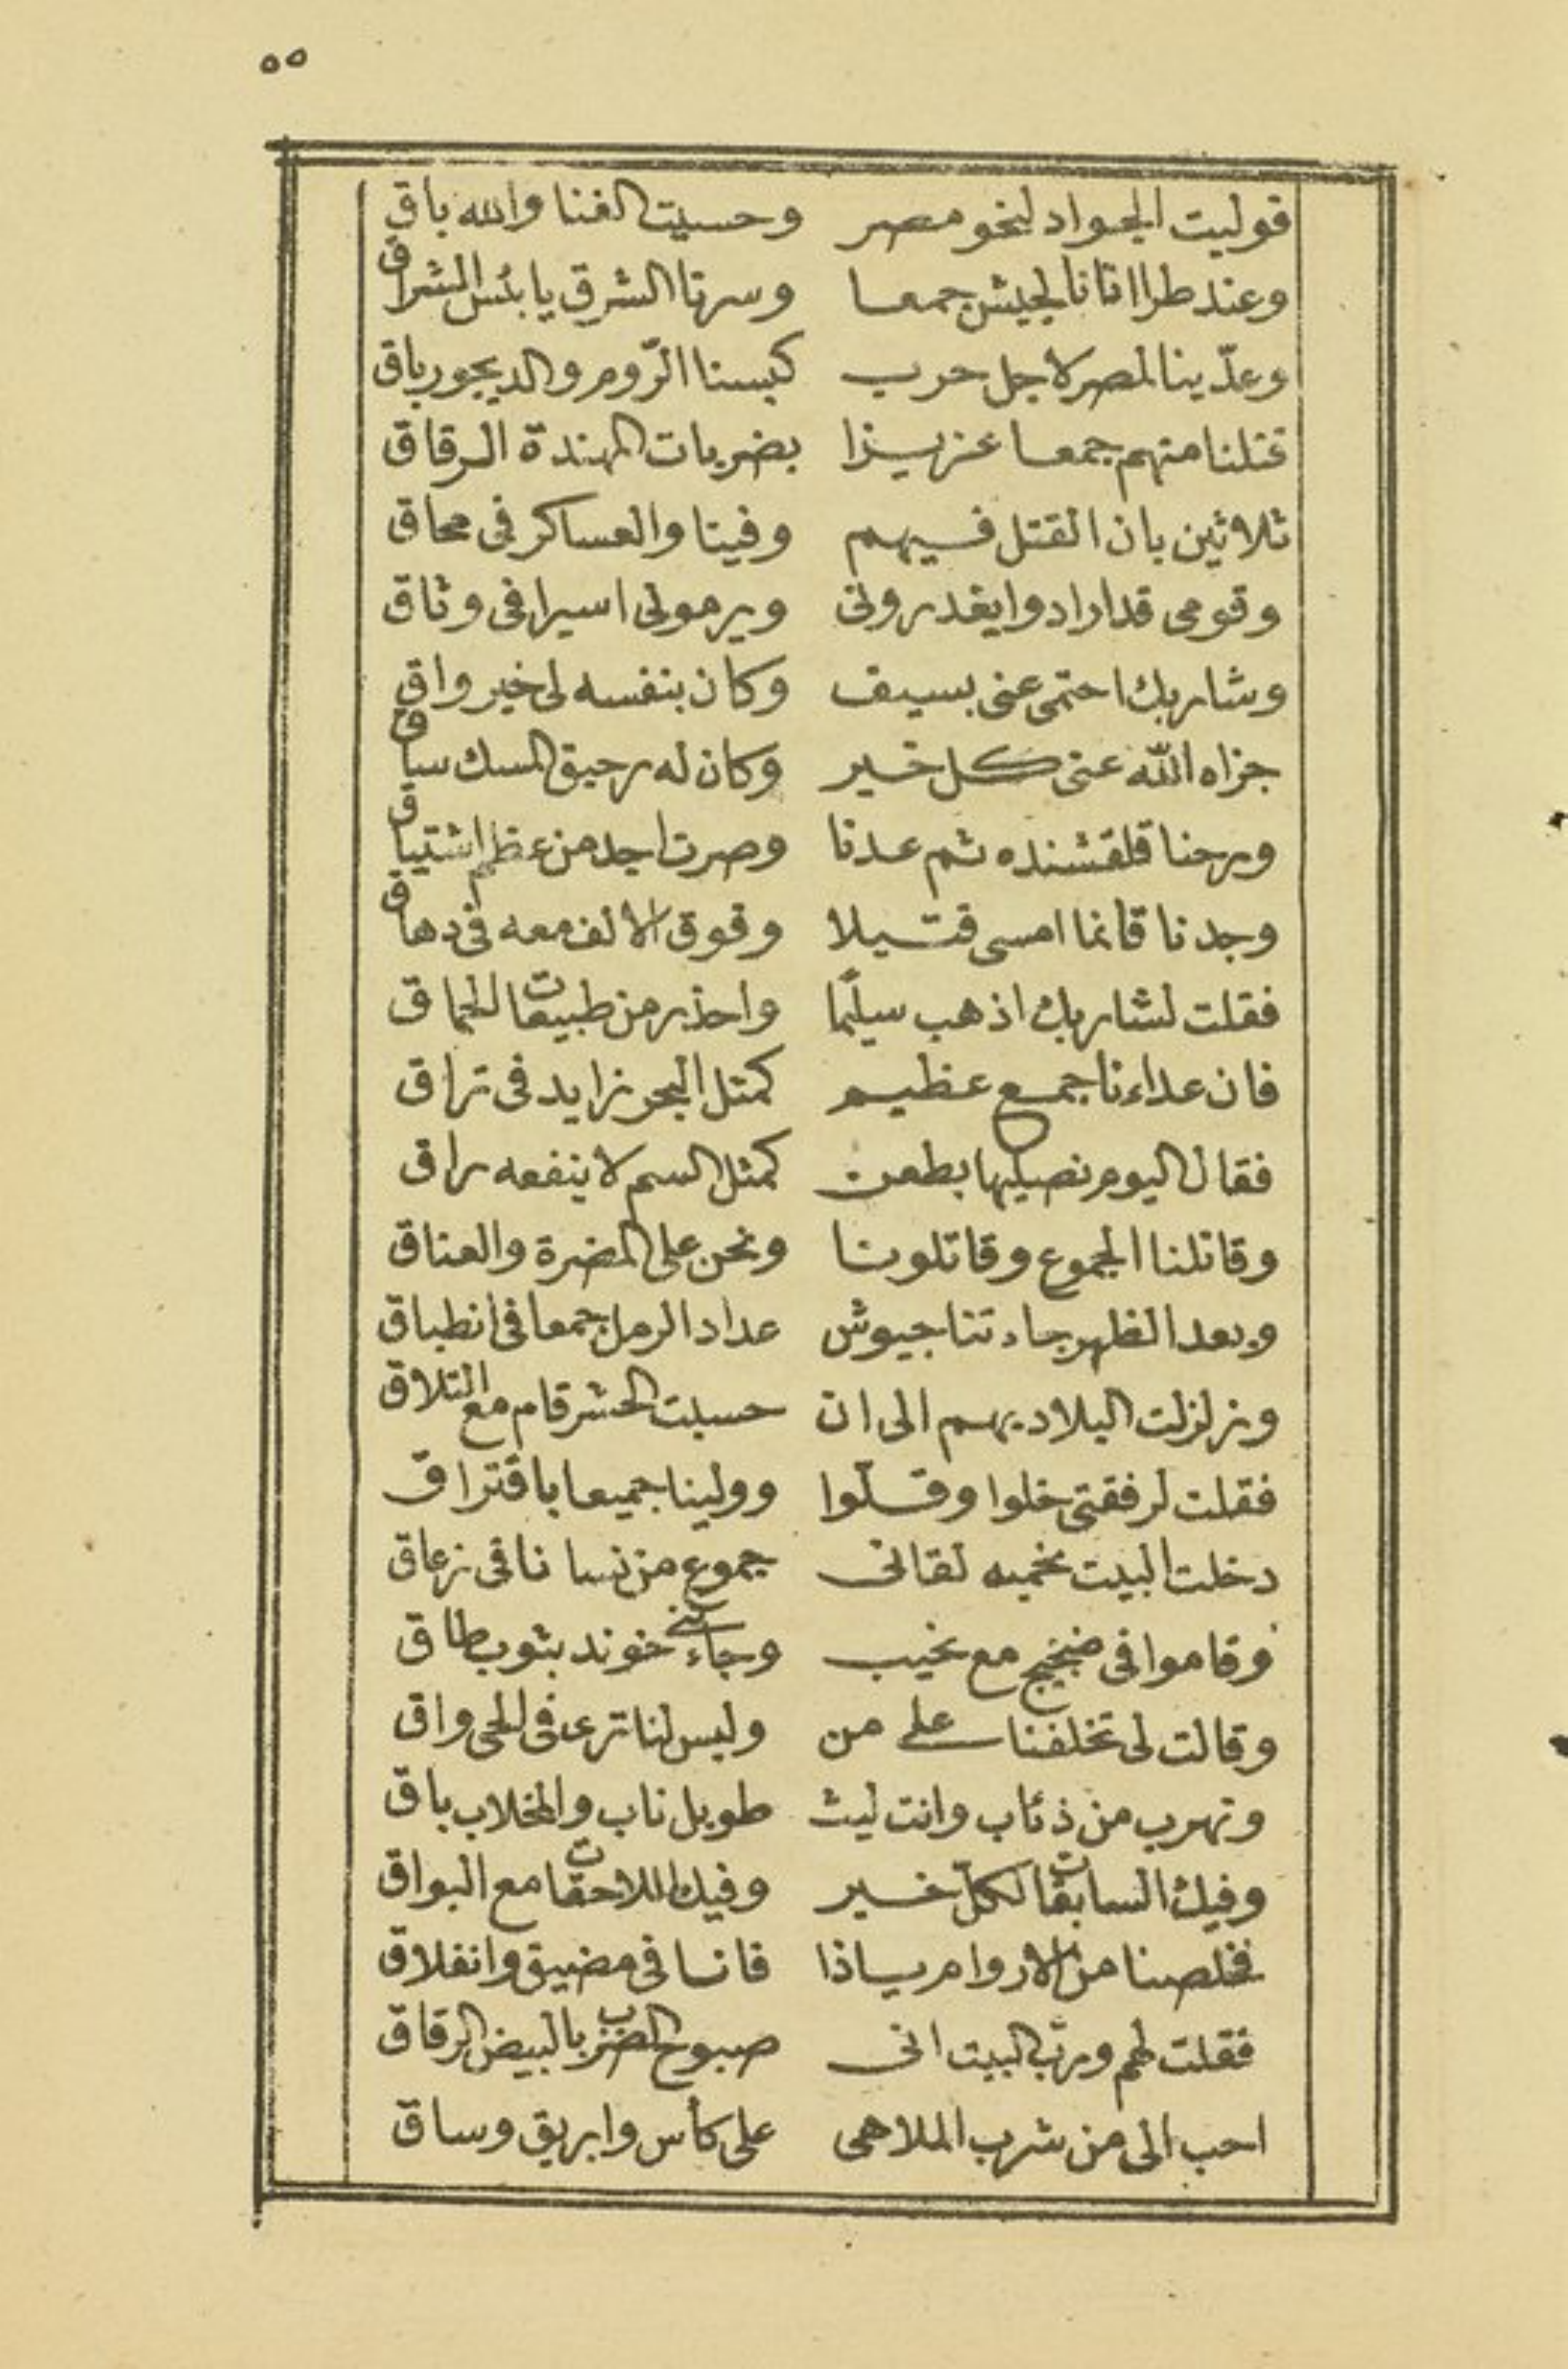 ٥٥
فوليت الجواد لنخو مصر وحسبت الفنا والله باق
وعند طرا اتانا الجيش جمعا وسرنا الشرق يا بئس الشراق
وعدّينا لمصر لاجل حرب كبسنا الرّوم والديجور باق
قتلنا منهم جمعا عزيزا بضربات المهندة الرقاق
ثلاثين بان القتل فيهم وفينا والعساكر فى محاق
وقومى قد ارادوا يغدرونى ويرمونى اسيرا فى وثاق
وشاربك احتمى عنى بسيف وكان بنفسه لى خير واق
جزاه الله عنى كل خير وكان له رحيق المسك ساق
ورحنا قلقشنده ثم عدنا وصرت اجد من عظم اشتياق
وجدنا قانما امسى قتيلا وفوق الالف معه فى دهاق
فقلت لشاربك اذهب سليما واحذر من طبيعات الحماق
فان عداءنا جمع عظيم كمثل البحر زايد فى تراق
فقال اليوم نصيلها بطعن كمثل السم لا ينفعه راق
وقاتلنا الجموع وقاتلونا ونحن على المضرة والعناق
وبعد الظهر جاءتنا جيوش عداد الرمل جمعا فى انطباق
وزلزلت البلاد بهم الى ان حسبت الحشر قام مع التلاق
فقلت لرفقتى خلوا وقلّوا وولينا جميعا بافتراق
دخلت البيت نخميه لقانى جموع من نسانا فى زعاق
وقاموا فى ضجيج مع نحيب وجاءتنى خوند بثوب طاق
وقالت لى تخلفنا على من وليس لنا ترى فى الحى واق
وتهرب من ذئاب وانت ليث طويل ناب والمخلاب باق
وفيك السابقات لكلّ خير وفيك اللاحقات مع البواق
فخلصنا من الاروام ياذا فانا فى مضيق وانفلاق
فقلت لهم وربّ البيت انى صبوح الضرب بالبيض الرقاق
احب الى من شرب الملاهى على كأس وابريق وساق